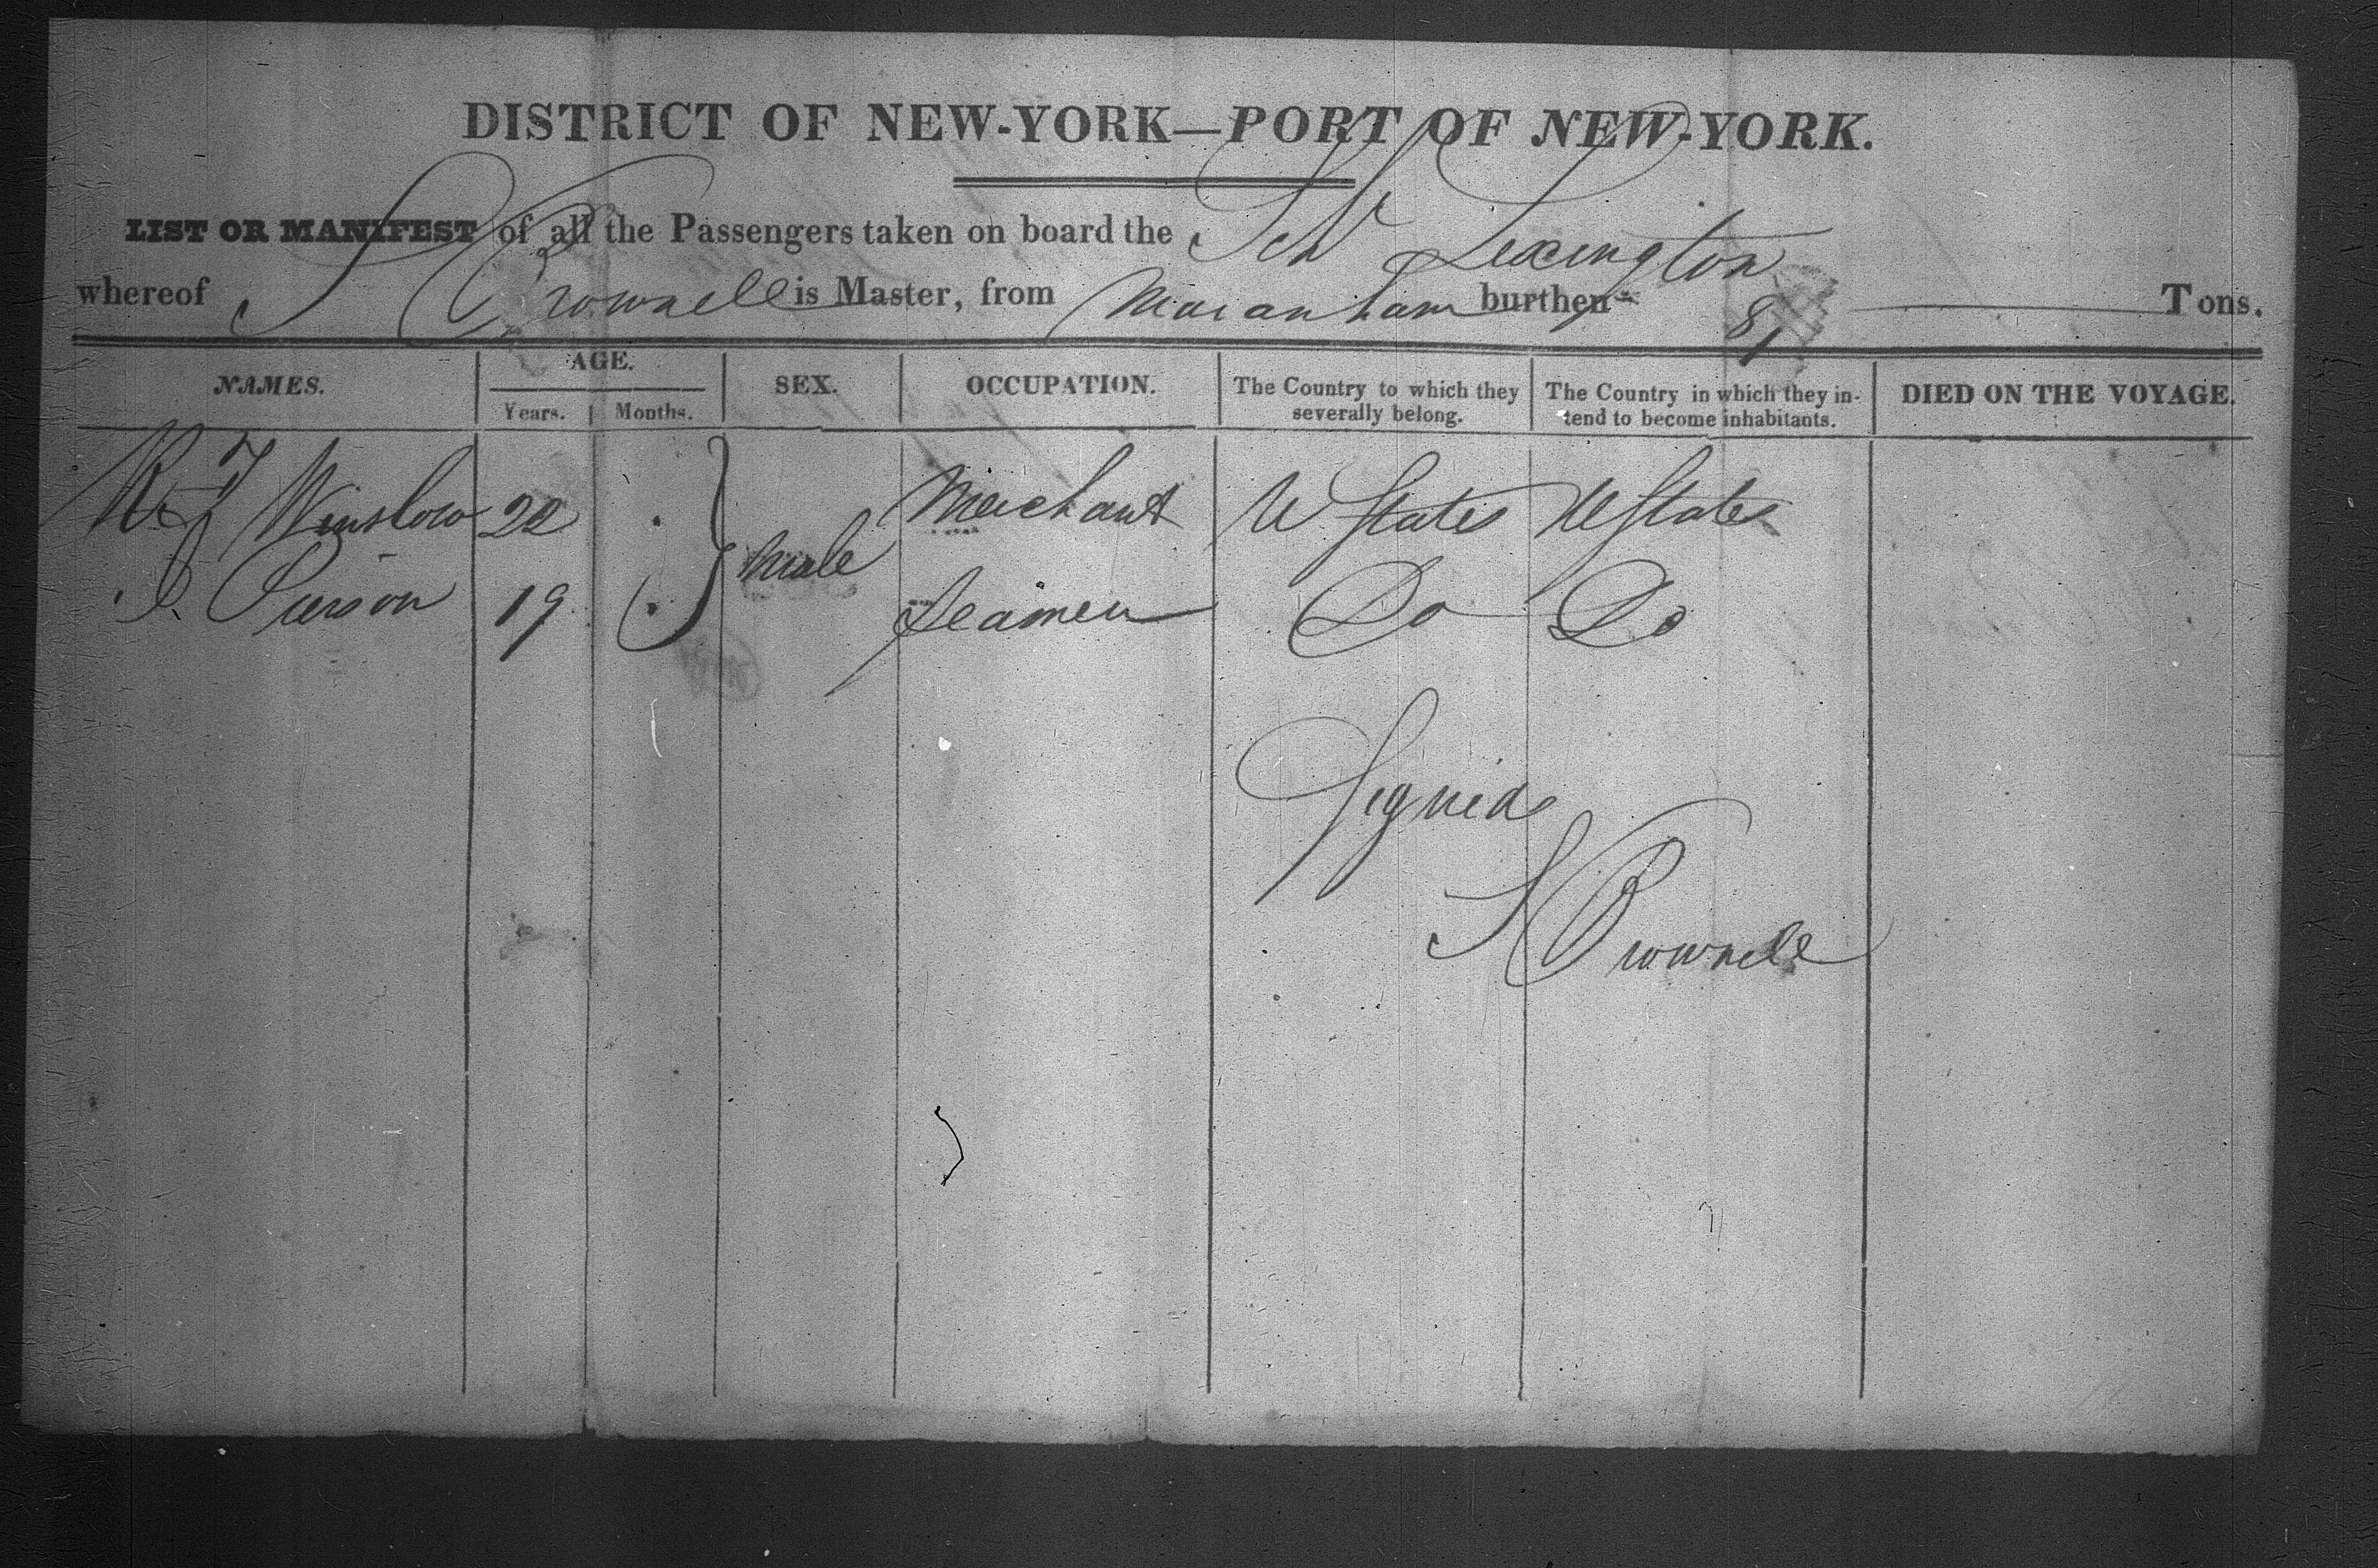 DISTRICT OF NEW-YORK—PORT OF NEW-YORK.
LIST OR MANIFEST of all the Passengers taken on board the Schr Lexington
whereof S Brownell is Master, from Maranham burthen 81 Tons.
NAMES. AGE. SEX. OCCUPATION. The Country to which they severally belong. The Country in which they intend to become inhabitants. DIED ON THE VOYAGE.
Years. Months.
Winslow 22 Merchant U States U States
male
Pierson 19 Seamen Do Do
Signed
S Brownell